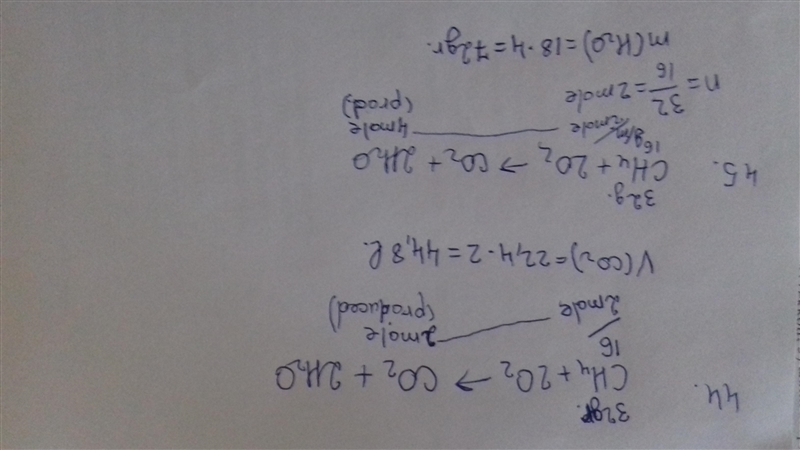 44.
32gr.
CH₄ + 2O₂ → CO₂ + 2H₂O
16
2mole 2mole
(produced)
V(CO₂) = 22,4 · 2 = 44,8 l.
45.
32g.
CH₄ + 2O₂ → CO₂ + 2H₂O
16 g/m
2mole 4mole
(prod.)
n = 32/16 = 2mole
m(H₂O) = 18 · 4 = 72gr.